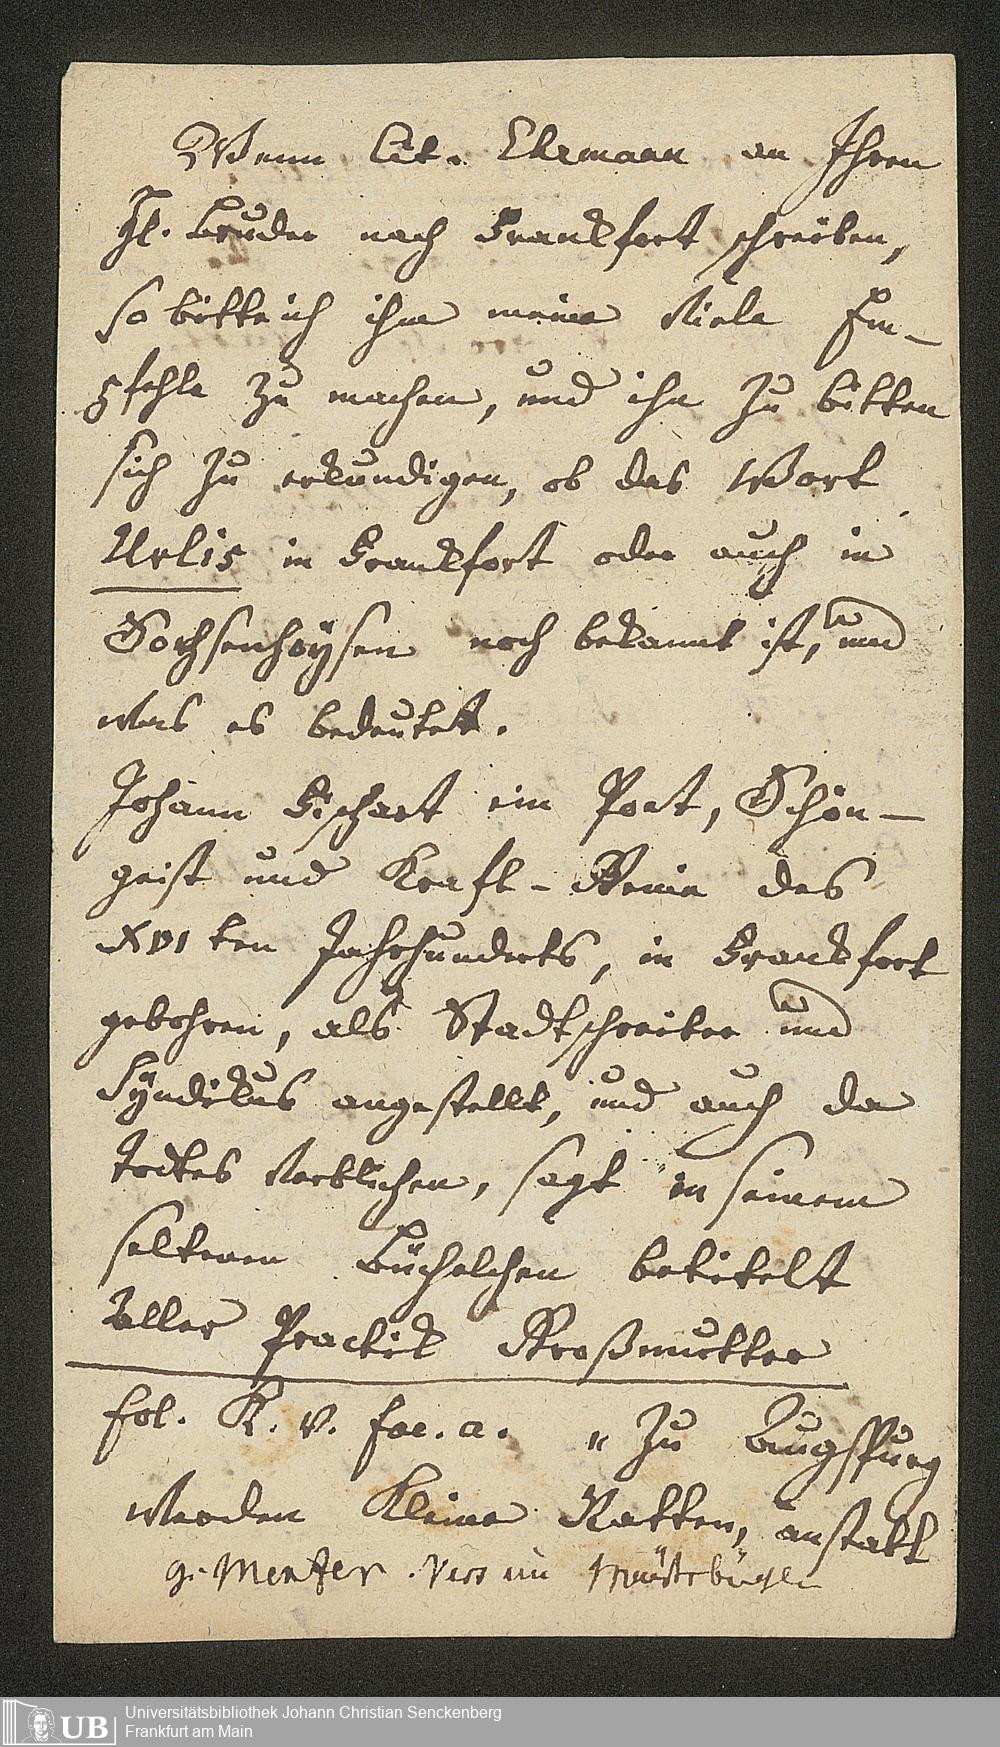 Wenn Cit. Ehrmann an Ihren
Hl. Bruder nach Frankfort schreiben,
so bitte ich ihm meine viele Em-
pfehle zu machen, und ihn zu bitten
sich zu erkundigen, ob das Wort
Urlis in Frankfort oder auch in
Sachsenhaüsen noch bekannt ist, und
was es bedeutet.
Johann Fischart ein Poet, Schön-
geist und Kraft-Genie des
XVI ten Jahrhunderts, in Frankfort
gebohren, als Stadtschreiber und
Syndikus angestellt, und auch da
Todtes verblichen, sagt in seinem
seltenen Büchelchen betitelt
Aller Practik Grosmutter
fol. K. v. fac. a. " Zu Augspurg
werden Kleine Ratten, anstatt
g. Mentzer